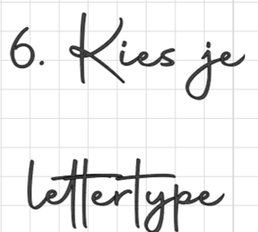 6. Kies je
lettertype